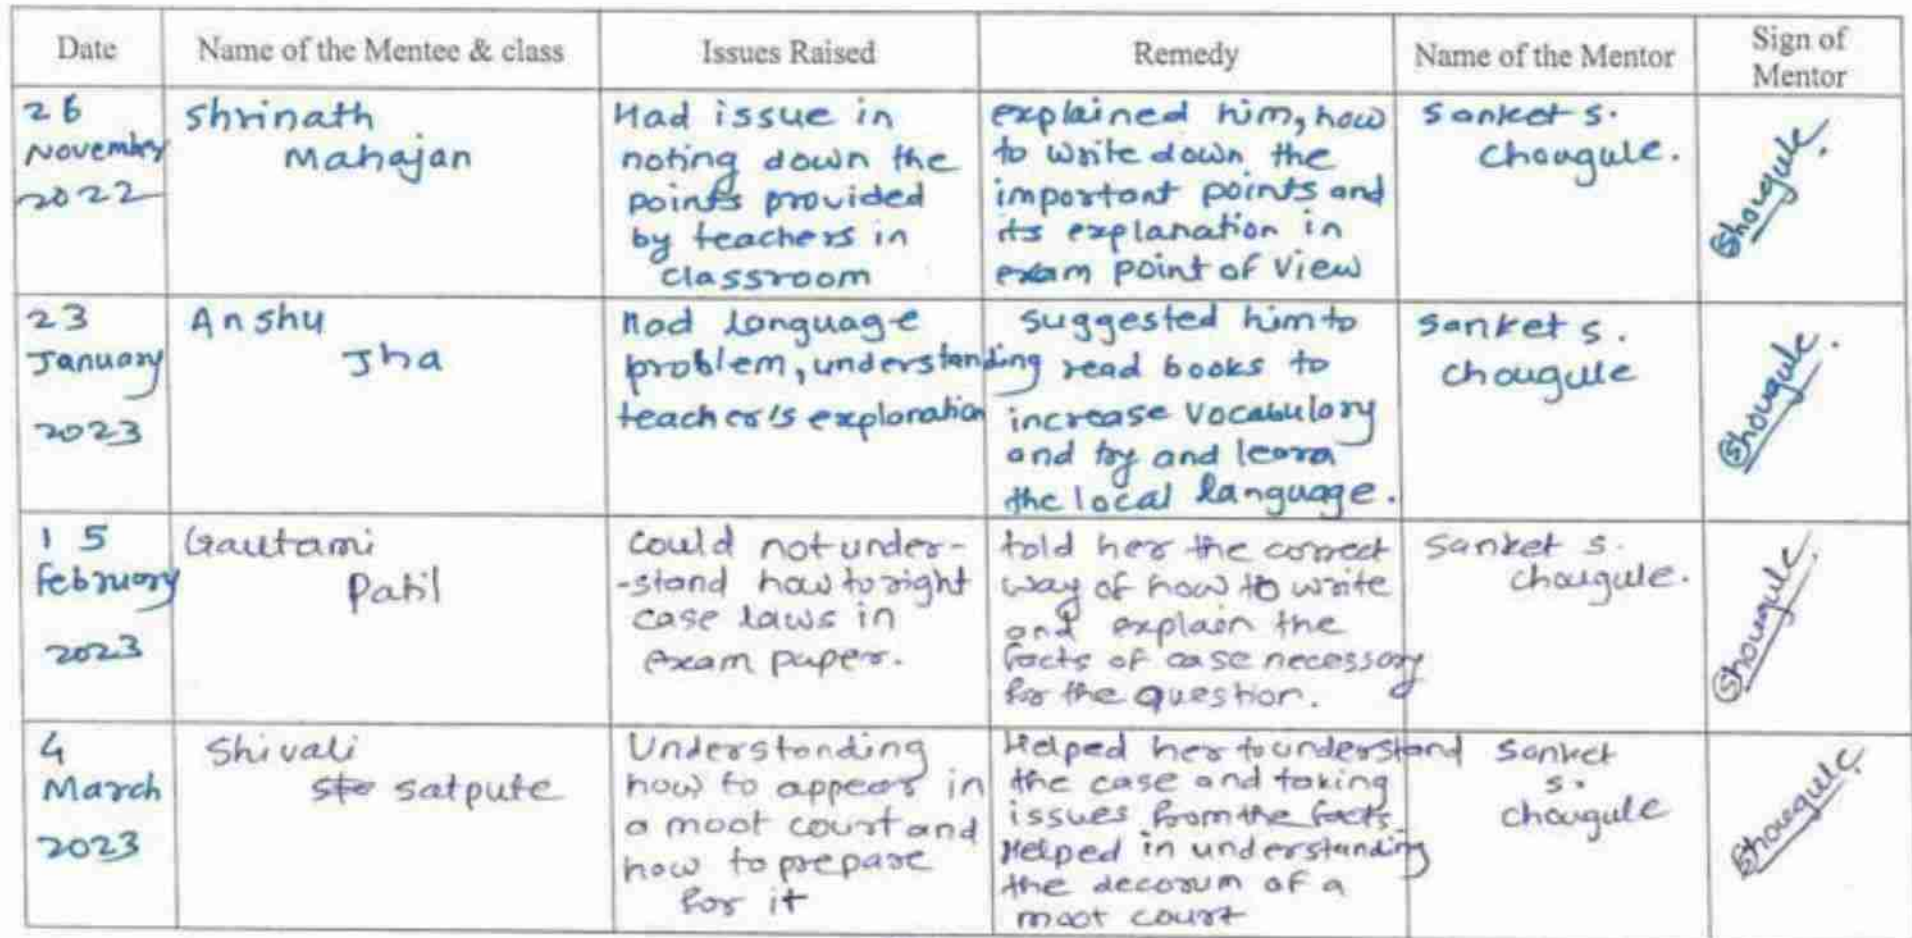 Date
Name of the Mentee & class
Issues Raised
Remedy
Name of the Mentor
Sign of
Mentor
26
November
2022
Shrinath
Mahajan
Had issue in
noting down the
points provided
by teachers in
classroom
explained him, how
to write down the
important points and
its explanation in
exam point of view
Sanket S.
Chougule.
Shougule.
23
January
2023
Anshu
Jha
Had language
problem, understanding
teacher's explanation
suggested him to
read books to
increase vocabulory
and try and learn
the local language.
Sanket S.
chougule
Shougule.
15
February
2023
Gautami
Patil
could not under-
-stand how to right
case laws in
exam paper.
told her the correct
way of how to write
and explain the
facts of case necessary
for the question.
Sanket S.
chougule.
Shougule.
4
March
2023
Shivali
satpute
Understanding
how to appear in
a moot court and
how to prepare
for it
Helped her to understand
the case and taking
issues from the facts.
Helped in understanding
the decorum of a
moot court
Sanket
S.
chougule
Shougule.